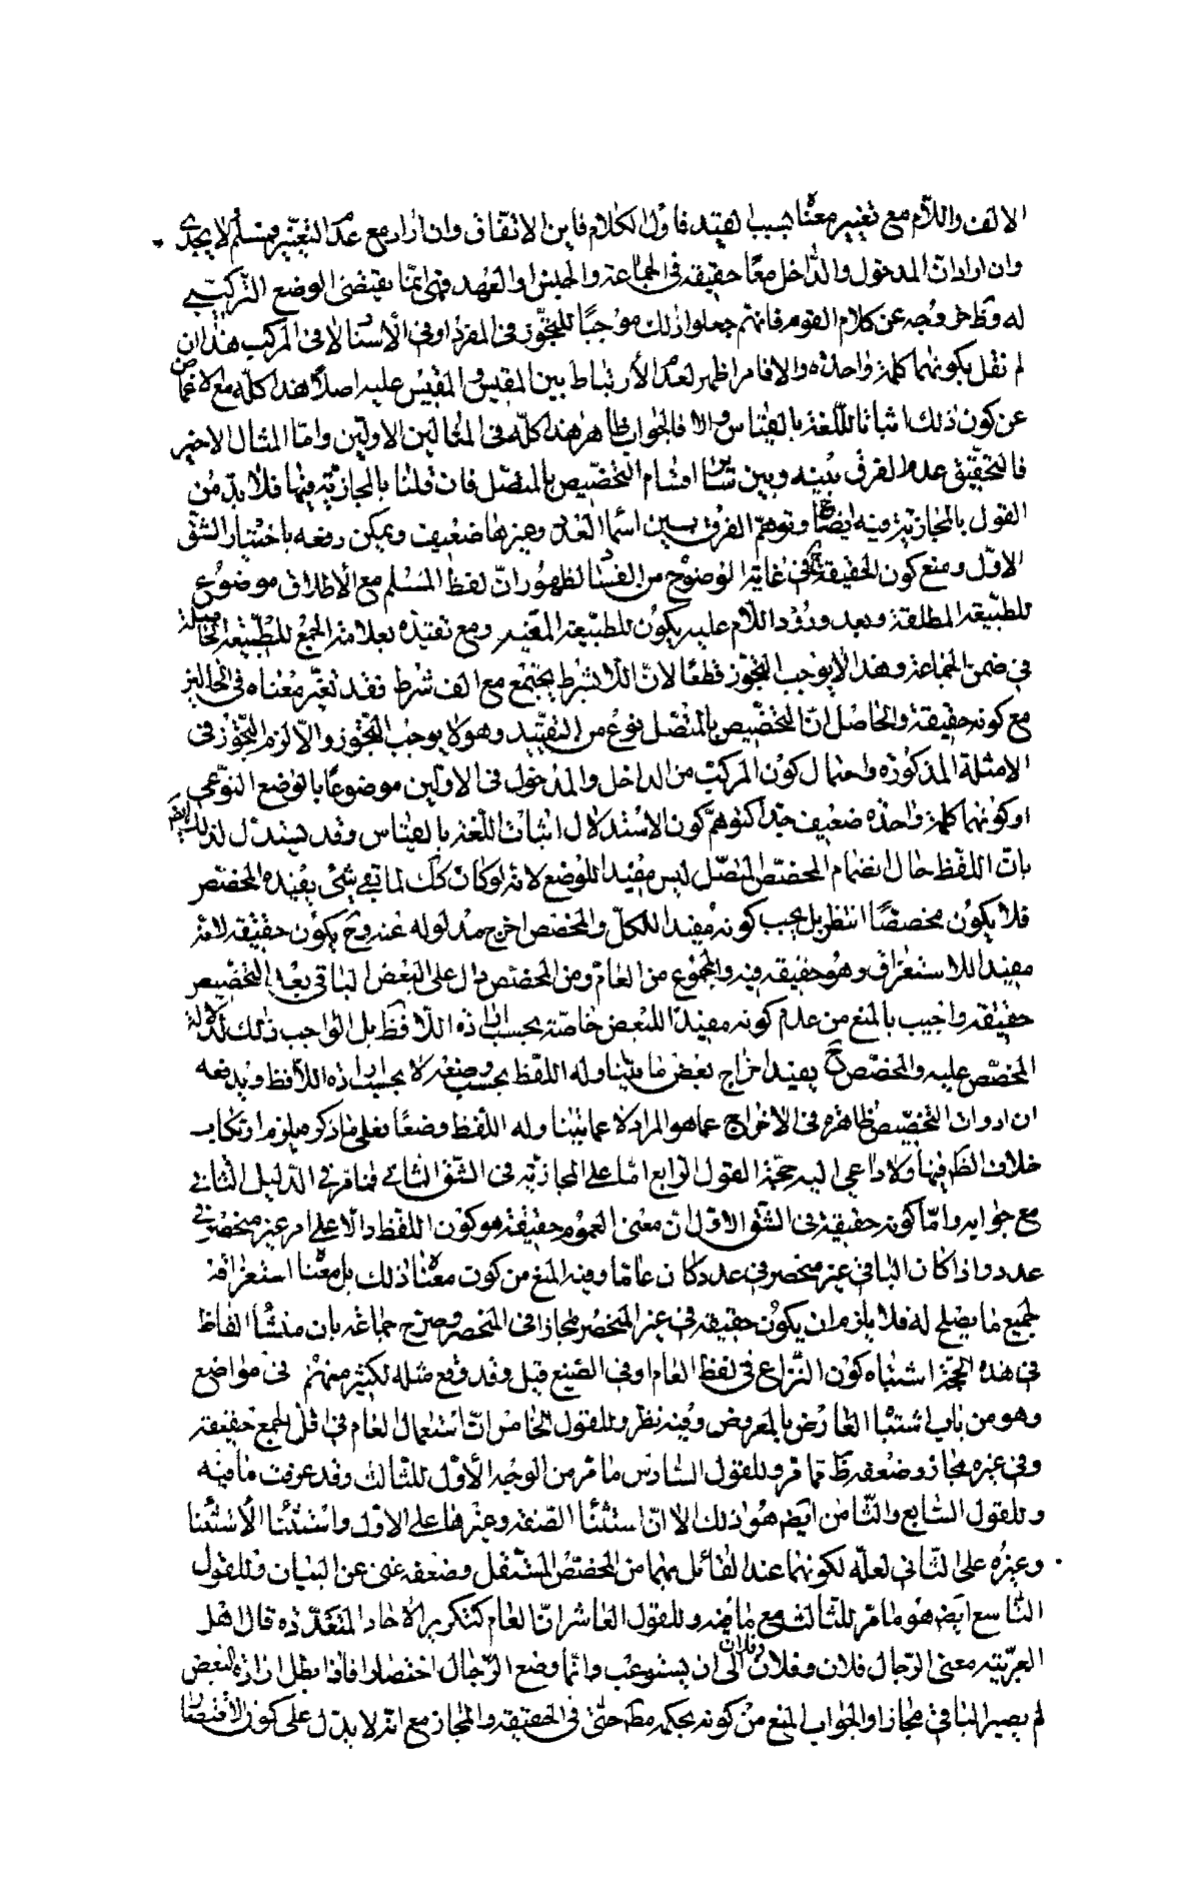 الالف واللام مع تغيير معناه بسبب القيد فاول الكلام فاين الاتفاق وان اراد مع عدم التغيير فمسلم لا يجدى
وان اراد ان المدخول والداخل معا حقيقة فى الجماعة والجنس او العهد فهى انما يقتضى الوضع التركيبى
له وظ خروجه عن كلام القوم فانهم جعلوا ذلك موجبا للتجوز فى المفرد او فى الاسناد لا فى المركب هذا ان
لم نقل بكونهما كلمة واحدة والا فامر اظهر لعدم الارتباط بين المقيس والمقيس عليه اصلا هذا كله مع الاغماض
عن كون ذلك اثباتا للغة بالقياس والا فالجواب ظاهر هذا كله فى المثالين الاولين واما المثال الاخير
فالتحقيق عدم الفرق بينه وبين سائر اقسام التخصيص بالمتصل فان قلنا بالمجازية فيها فلا بد من
القول بالمجازية فيه ايضا وتوهم الفرق بين اسماء العدد وغيرها ضعيف ويمكن دفعه باختيار الشق
الاول ومنع كون الحقيقة ح فى غاية الوضوح من الفساد لظهور ان لفظ المسلم مع الاطلاق موضوع
للطبيعة المطلقة وبعد ورود اللام عليه يكون للطبيعة المقيدة ومع تقيده بعلامة الجمع للطبيعة الحاصلة
فى ضمن الجماعة وهذا لا يوجب التجوز قطعا لان اللا بشرط يجتمع مع الف شرط فقد تغير معناه فى الحالين
مع كونه حقيقة والحاصل ان التخصيص بالمتصل نوع من التقييد وهو لا يوجب التجوز والا لزم التجوز فى
الامثلة المذكورة واحتمال كون المركب من الداخل والمدخول فى الاولين موضوعا بالوضع النوعى
او كونهما كلمة واحدة ضعيف جدا كتوهم كون الاستدلال اثبات اللغة بالقياس وقد يستدل لذلك ايضا
بان اللفظ حال انضمام المخصص المتصل ليس مفيدا للوضع لانه لو كان كك لما بقى شئ يفيده المخصص
فلا يكون مخصصا انتظر بل يجب كونه مفيدا للكل والمخصص اخرج مدلوله عنه وح يكون حقيقة لانه
مفيد للاستغراق وهو حقيقة فيه والمجموع من العام ومن المخصص دال على البعض الباقى بعد التخصيص
حقيقة واجيب بالمنع من عدم كونه مفيدا للبعض خاصة بحسب ارادة اللافظ بل الواجب ذلك لدلالة
المخصص عليه والمخصص ح يفيد اخراج بعض ما يتناوله اللفظ بحسب وضعه لا بحسب ارادة اللافظ ويدفعه
ان ادوات التخصيص ظاهرة فى الاخراج عما هو المراد لا عما يتناوله اللفظ وضعا فعلى ما ذكر فيلزم ارتكاب
خلاف الظ فيها ولا داعى اليه حجة القول الرابع اما على المجازية فى الشق الثانى فما مر فى الدليل الثانى
مع جوابه واما كونه حقيقة فى الشق الاول ان معنى العموم حقيقة هو كون اللفظ دالا على امر غير منحصر فى
عدد واذا كان الباقى غير منحصر فى عدد كان عاما وفيه المنع من كون معناه ذلك بل معناه استغراقه
لجميع ما يصلح له فلا يلزم ان يكون حقيقة فى غير المنحصر ومجازا فى المنحصر وصرح جماعة بان منشا الفاظ
فى هذه الحجة اشتباه كون النزاع فى لفظ العام او فى الصيغ قبل وقد وقع مثله لكثير منهم فى مواضع
وهو من باب اشتباه العارض بالمعروض وفيه نظر وللقول الخامس ان استعمال العام فى اقل الجمع حقيقة
وفى غيره مجاز وضعفه ظ مما مر وللقول السادس ما مر من الوجه الاول للثالث وقد عرفت ما فيه
وللقول السابع والثامن ايضا هو ذلك الا ان استثناء الصفة وغيرها على الاول واستثناء الاستثناء
وغيره على الثانى لعله لكونهما عند القائل بهما من المخصص المستقل وضعفه غنى عن البيان وللقول
التاسع ايضا هو ما مر للثالث مع ما فيه وللقول العاشر ان العام كتكرير الاحاد المتعددة قال اهل
العربية معنى الرجال فلان وفلان وفلان الى ان يستوعب وانما وضع الرجال اختصارا فاذا بطل ارادة البعض
لم يصير الباقى مجازا والجواب المنع من كونه بحكمه مط حتى فى الحقيقة والمجاز مع انه لا يدل على كون الاقتصار